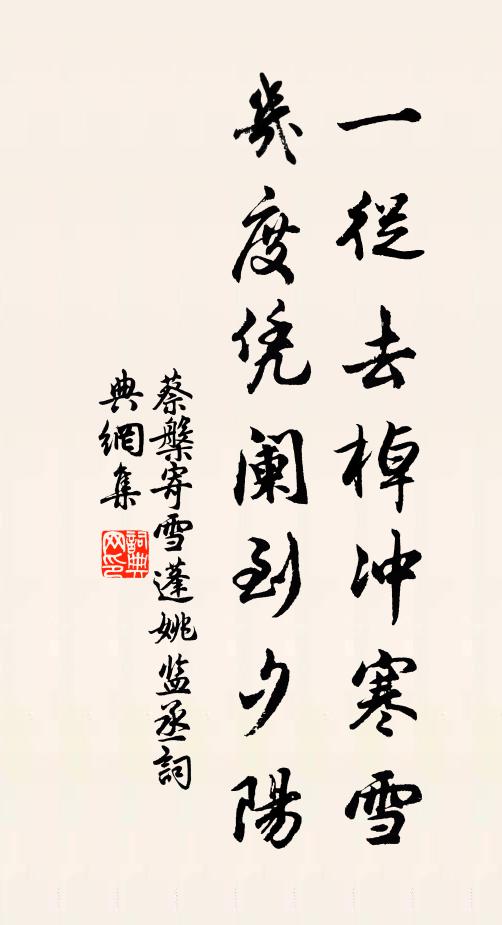 一從去棹冲寒雪
幾度凭阑到夕陽
蔡槃寄雪蓬姚监丞詞
典網集
詞典网印